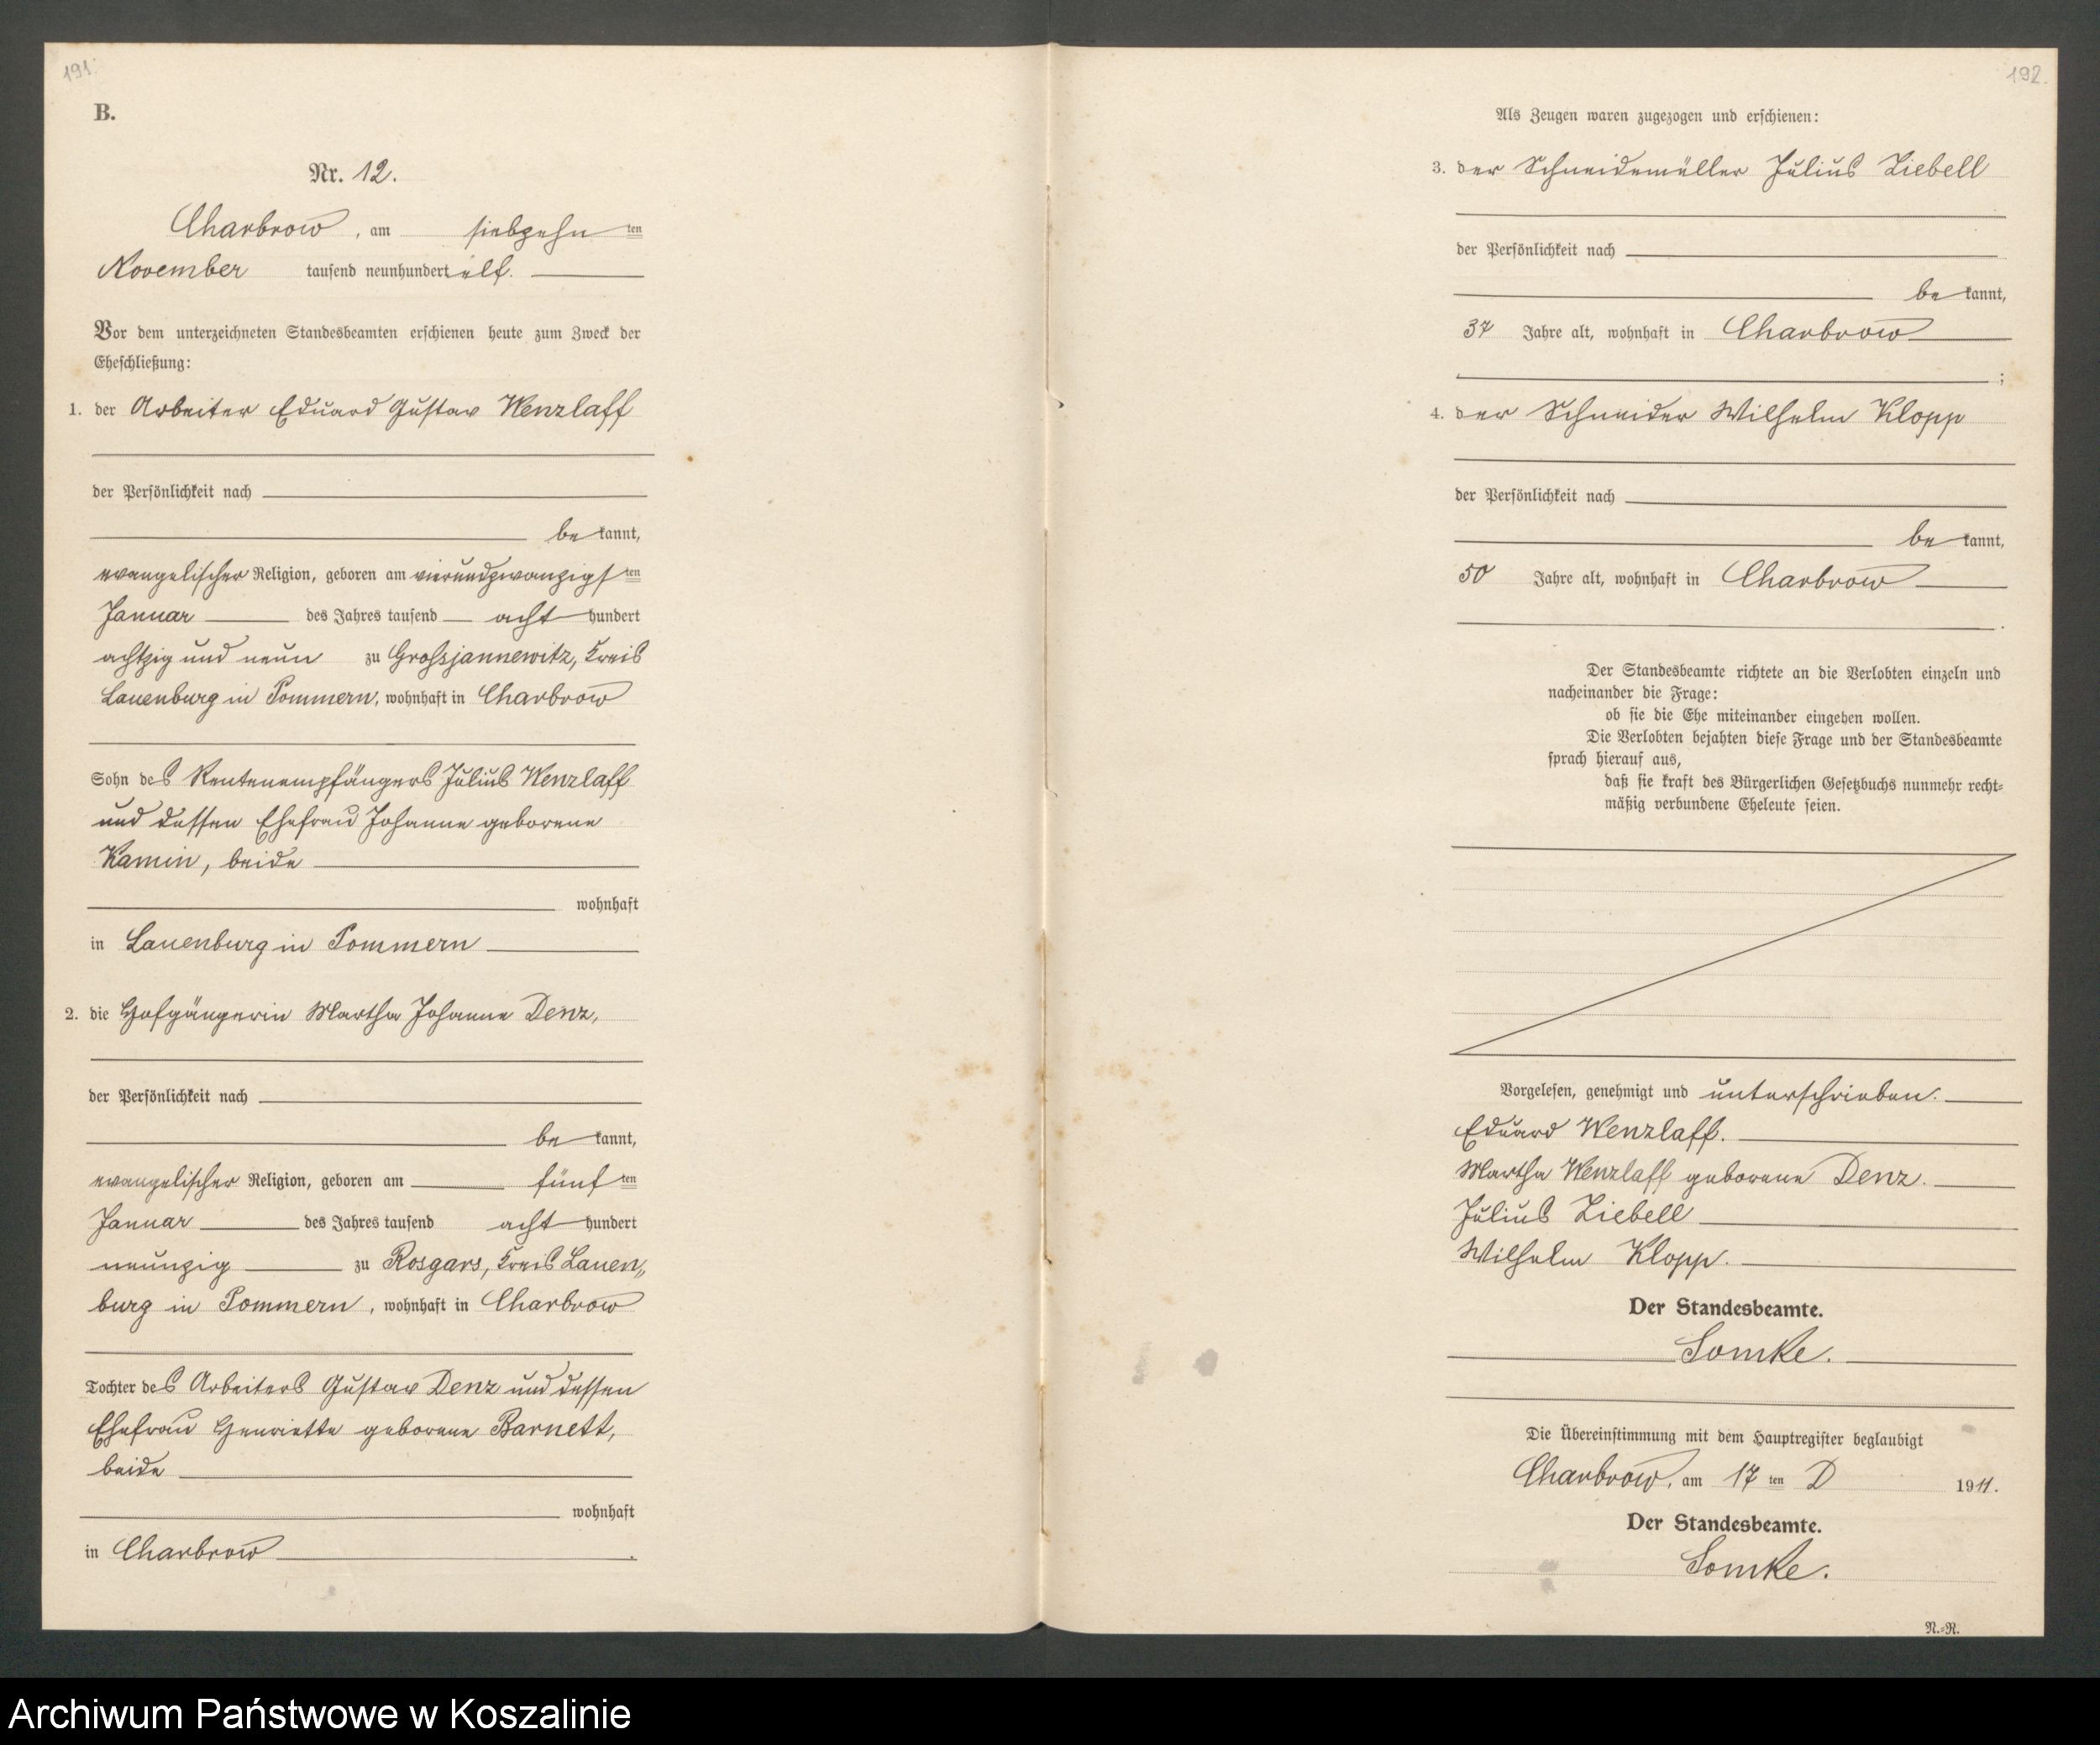 191.
B.
Nr. 12.
Charbrow, am siebzehn ten
November tausend neunhundert elf.
Vor dem unterzeichneten Standesbeamten erschienen heute zum Zweck der
Eheschließung:
1. der Arbeiter Eduard Gustav Wenzlaff
der Persönlichkeit nach
be kannt,
evangelischer Religion, geboren am vierundzwanzigs ten
Januar des Jahres tausend acht hundert
achtzig und neun zu Grossjannewitz, Kreis
Lauenburg in Pommern, wohnhaft in Charbrow
Sohn des Rentenempfängers Julius Wenzlaff
und dessen Ehefrau Johanne geborene
Kamin, beide
wohnhaft
in Lauenburg in Pommern
2. die Hofgängerin Martha Johanne Denz,
der Persönlichkeit nach
be kannt,
evangelischer Religion, geboren am fünf ten
Januar des Jahres tausend acht hundert
neunzig zu Rosgars, Kreis Lauen„
burg in Pommern, wohnhaft in Charbrow
Tochter des Arbeiters Gustav Denz und dessen
Ehefrau Henriette geborene Barnett,
beide
wohnhaft
in Charbrow.
192.
Als Zeugen waren zugezogen und erschienen:
3. der Schneidemüller Julius Liebell
der Persönlichkeit nach
be kannt,
37 Jahre alt, wohnhaft in Charbrow
;
4. der Schneider Wilhelm Klopp
der Persönlichkeit nach
be kannt,
50 Jahre alt, wohnhaft in Charbrow
.
Der Standesbeamte richtete an die Verlobten einzeln und
nacheinander die Frage:
ob sie die Ehe miteinander eingehen wollen.
Die Verlobten bejahten diese Frage und der Standesbeamte
sprach hierauf aus,
daß sie kraft des Bürgerlichen Gesetzbuchs nunmehr recht-
mäßig verbundene Eheleute seien.
Vorgelesen, genehmigt und unterschrieben.
Eduard Wenzlaff.
Martha Wenzlaff geborene Denz.
Julius Liebell
Wilhelm Klopp.
Der Standesbeamte.
Somke.
Die Übereinstimmung mit dem Hauptregister beglaubigt
Charbrow, am 17 ten D 1911.
Der Standesbeamte.
Somke.
N.-R.
Archiwum Państwowe w Koszalinie